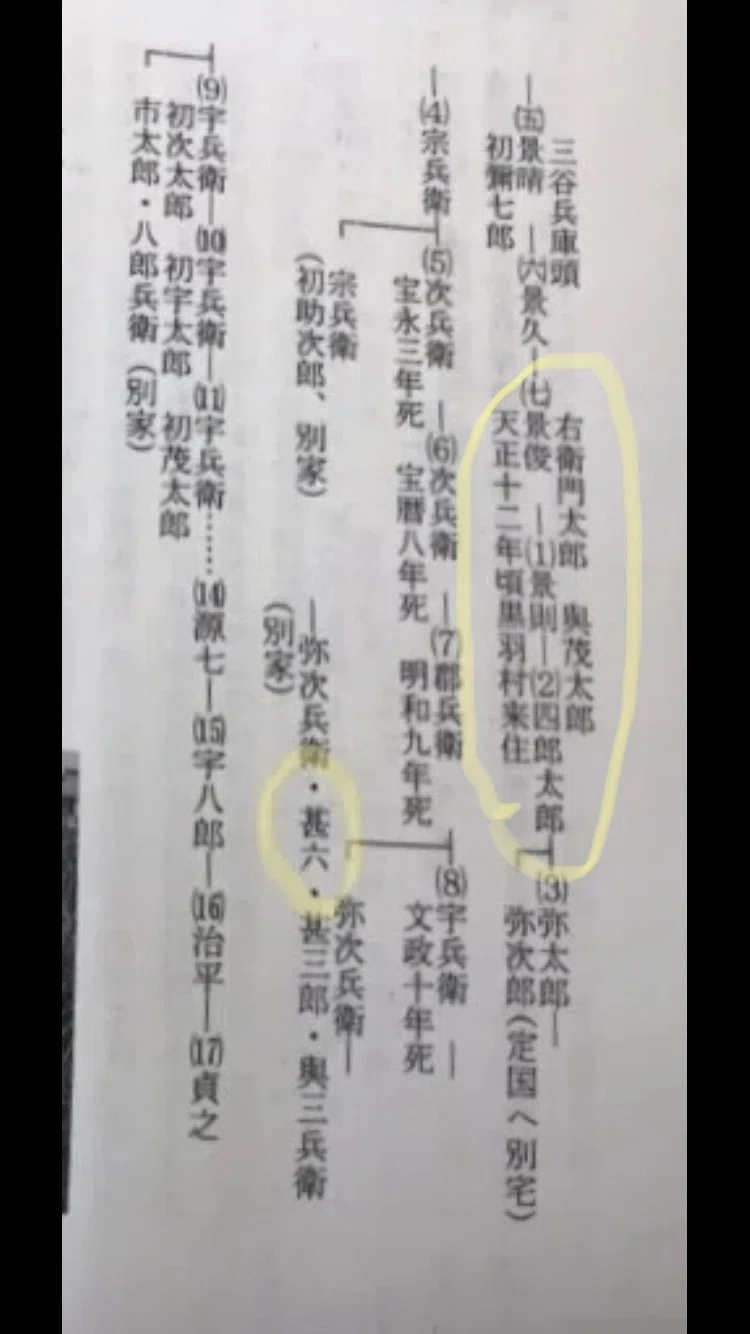 三谷兵庫頭 右衛門太郎 與茂太郎
―㈤景晴 ―㈥景久―㈦景俊 ―⑴景則―⑵四郎太郎 ⑶弥太郎―
初彌七郎 天正十二年頃黒羽村来住 弥次郎(定国へ別宅)
―⑷宗兵衛 ⑸次兵衛 ―⑹次兵衛 ―⑺郡兵衛 ⑻宇兵衛 ―
宝永三年死 宝暦八年死 明和九年死 文政十年死
宗兵衛 弥次兵衛―
(初助次郎、別家) ―弥次兵衛・甚六・甚三郎・與三兵衛
(別家)
⑼宇兵衛―⑽宇兵衛―⑾宇兵衛……⒁源七―⒂宇八郎―⒃治平―⒄貞之
初次太郎 初宇太郎 初茂太郎
市太郎・八郎兵衛(別家)